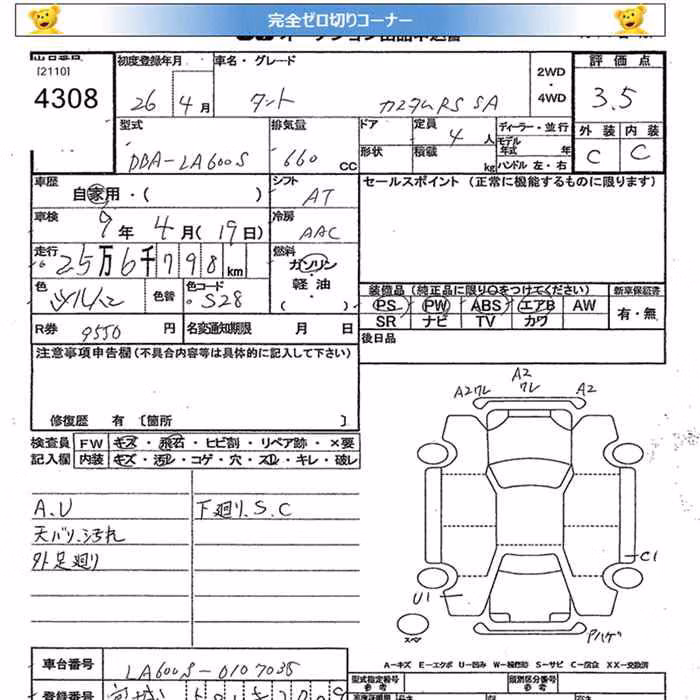 完全ゼロ切りコーナー
[2110]
4308
初度登録年月
26 4月
車名・グレード
タント カスタムRS SA
2WD
・
4WD
評価点
3.5
外装 内装
C C
型式
DBA-LA600S
排気量
660 CC
ドア
形状
定員
4 人
積載
kg
ディーラー・並行
モデル
年式 年
ハンドル 左・右
車歴
自家用・( )
シフト
AT
セールスポイント (正常に機能するものに限ります)
車検
9年 4月(19日)
冷房
AAC
走行
25万6千798km
燃料
ガソリン
軽油
( )
色
ツルハニ
色替
色コード
S28
装備品(純正品に限り〇をつけてください)
新車保証書
PS PW ABS エアB AW
SR ナビ TV カワ
有・無
R券 9550 円
名変通知期限 月 日
後日品
注意事項申告欄(不具合内容等は具体的に記入して下さい)
修復歴 有 〔箇所 〕
検査員
記入欄
FW キズ・飛石・ヒビ割・リペア跡・×要
内装 キズ・汚レ・コゲ・穴・スレ・キレ・破レ
A.U
天バリ.汚れ
外足廻り
下廻り.S.C
A2ワレ
A2
ワレ
A2
C1
U1
スペア
Pハゲ
A-キズ E-エクボ U-凹み W-補修跡 S-サビ C-腐食 XX-交換済
車台番号
LA600S-0107035
型式指定番号
参考
類別区分番号
参考
登録番号